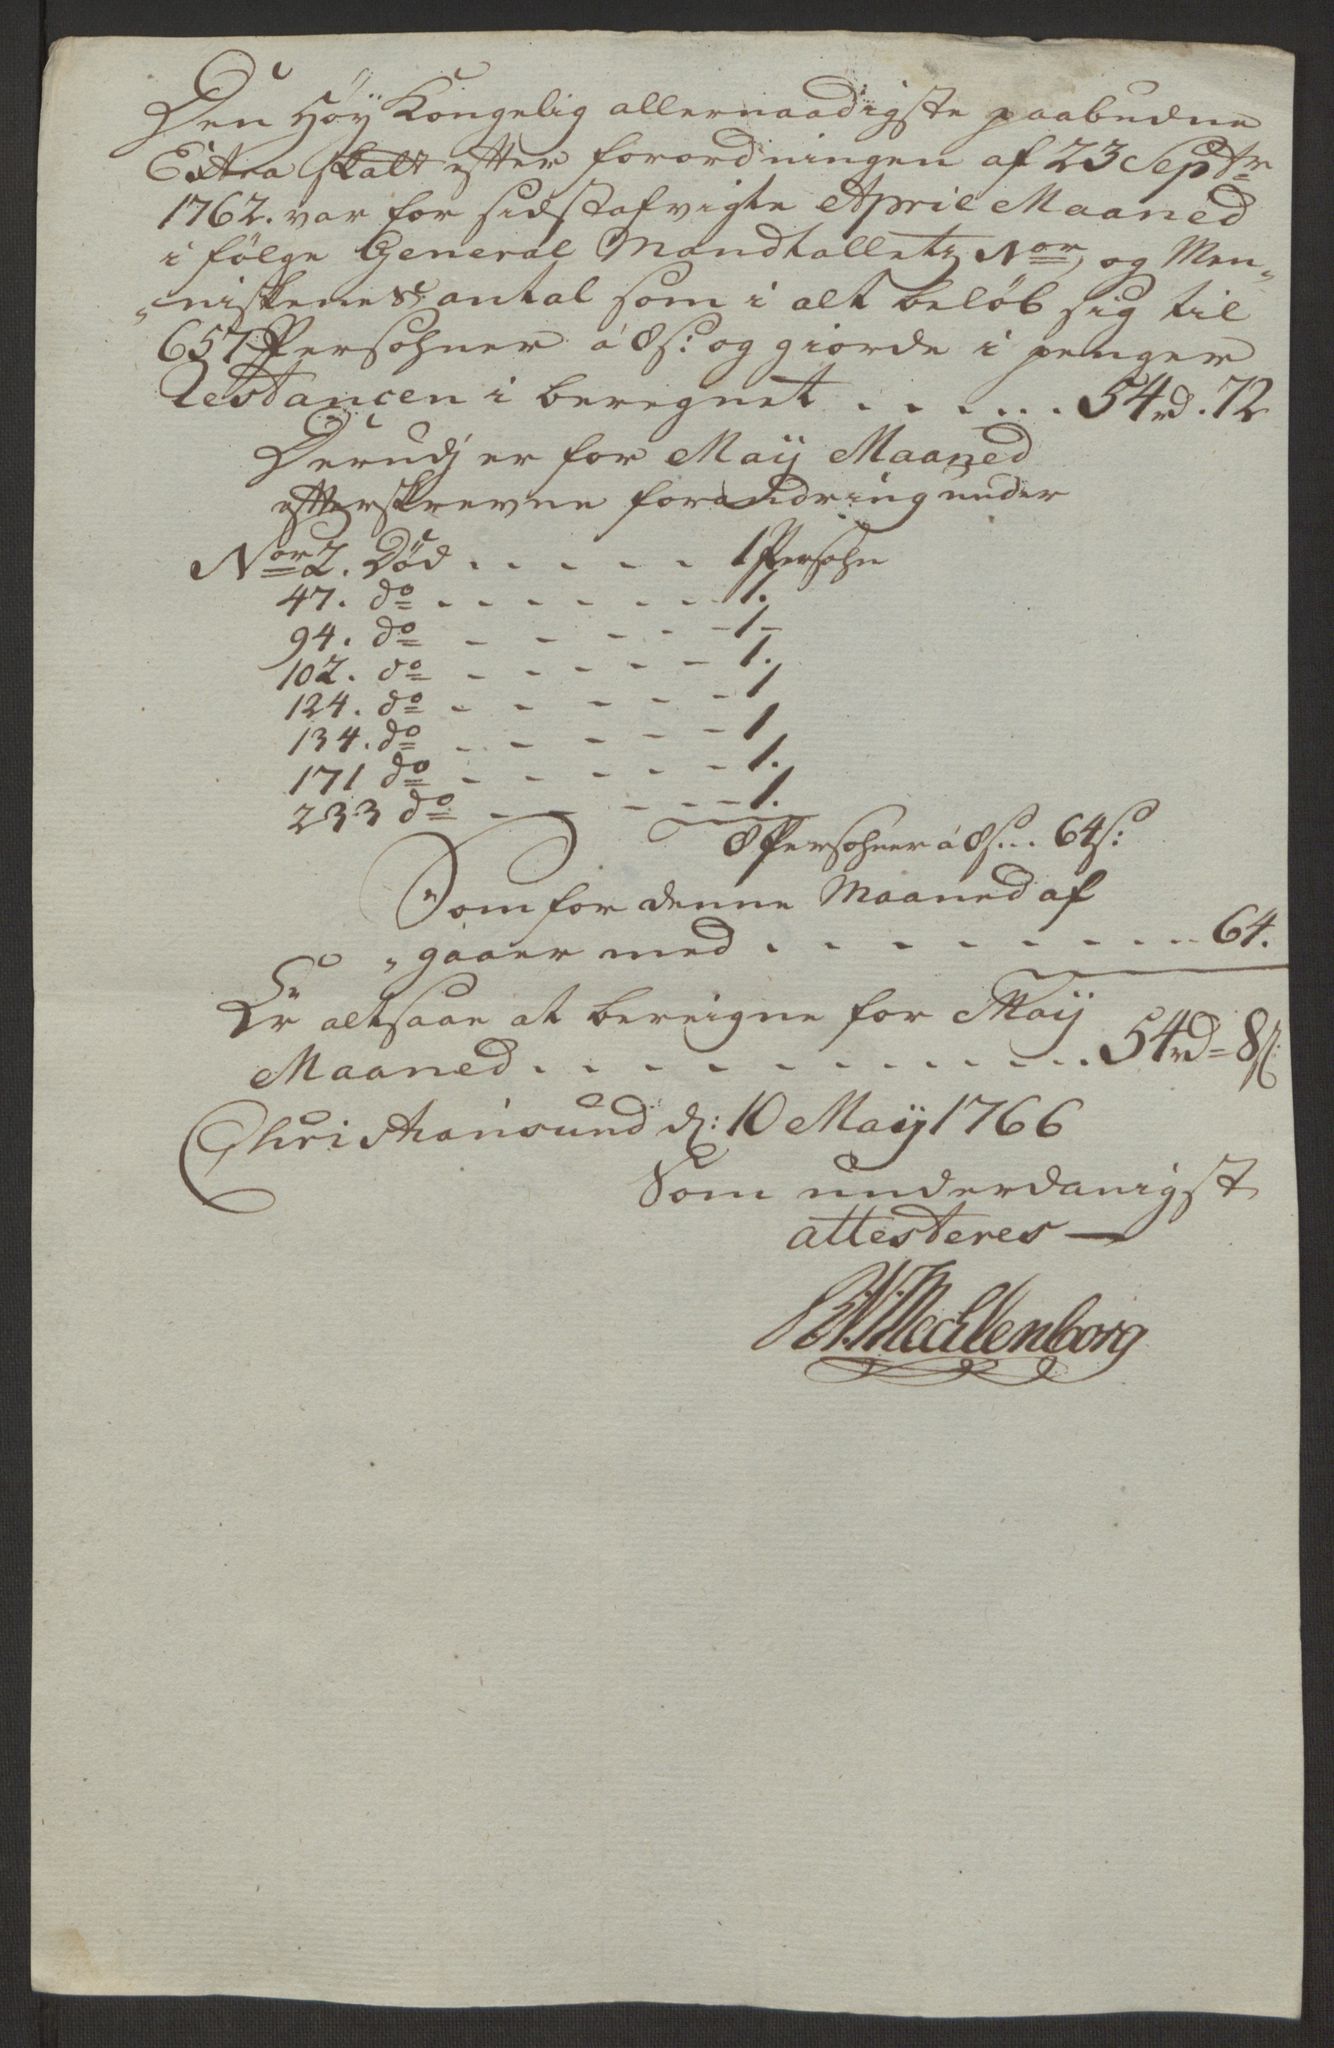 Den Höy Kongelig allernaadigste paabudne
Extra Skatt efter forordningen af 23 Septr
1762. var for sidstafvigte April Maaned
i følge General Mandtallets Nor, og Men„
„niskenes antal som i alt beløb sig til
657 Persohner á 8s: og giorde i penger
Restancen i beregnet . . . . . . 54rd. 72
Derudj er for Maij Maaned
efterskrevne forandring under
Nor 2. Død . . . . . 1 Persohn
47. do . . . . . . 1.
94. do - - - - - 1 -
102. do - - - - - 1.
124. do - - - - - 1
134. do - - - - - 1
171 do - - - - - 1.
233 do - - - - - 1.
8 Persohner á 8s... 64s:
Som for denne Maaned af
„gaaer med . . . . . . . . . 64.
Er altsaae at bereigne for Maij
Maaned . . . . . . . . . . . 54rd = 8s:
Christiansund d: 10 Maij 1766
Som underdanigst
attesteres —
Mechlenborg